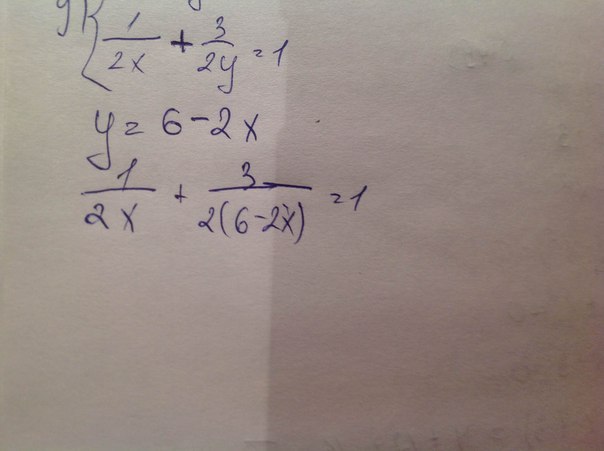 { 1/2x + 3/2y = 1
y = 6 - 2x
1/2x + 3/2(6-2x) = 1